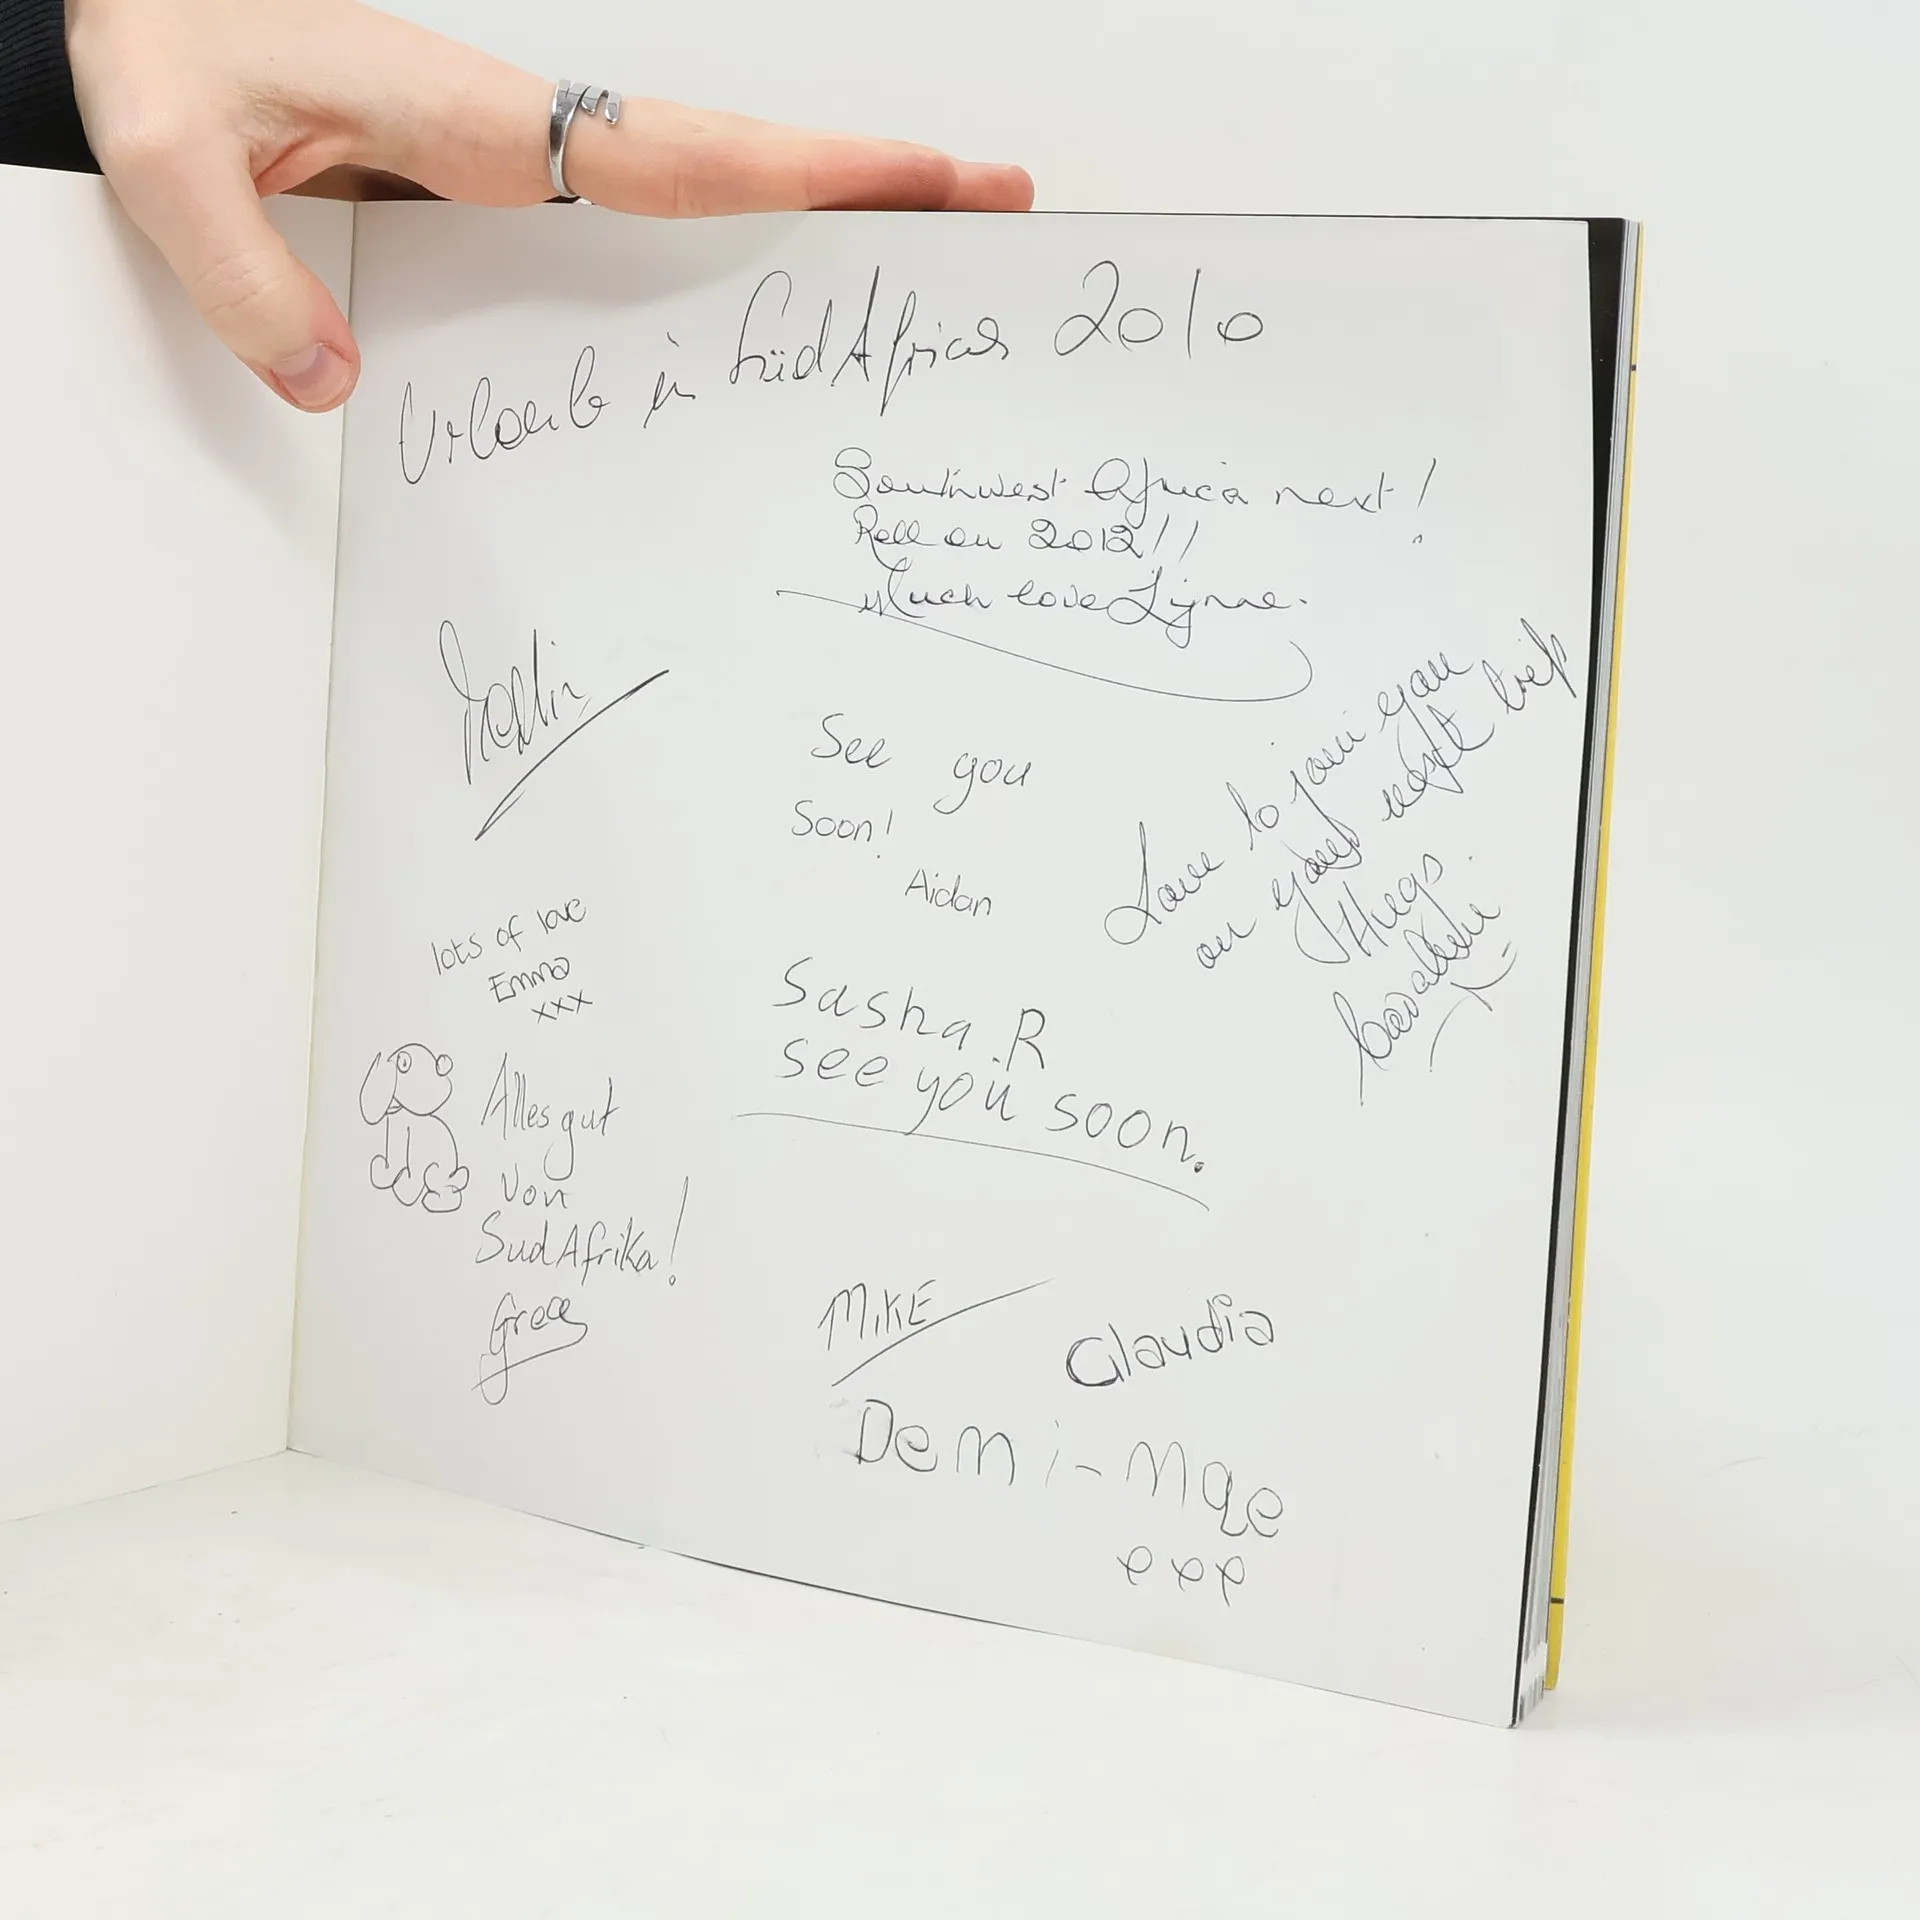 Urlaub in Süd Africa 2010
Southwest Africa next!
Roll on 2012!!
Much love Lynne.
See you
Soon!
Aidan
Love to join you
on your next trip
Hugs
lots of love
Emma
xxx
Sasha.R
see you soon.
Alles gut
von
SudAfrika!
Greg
MIKE
Claudia
Demi-Mae
xxx